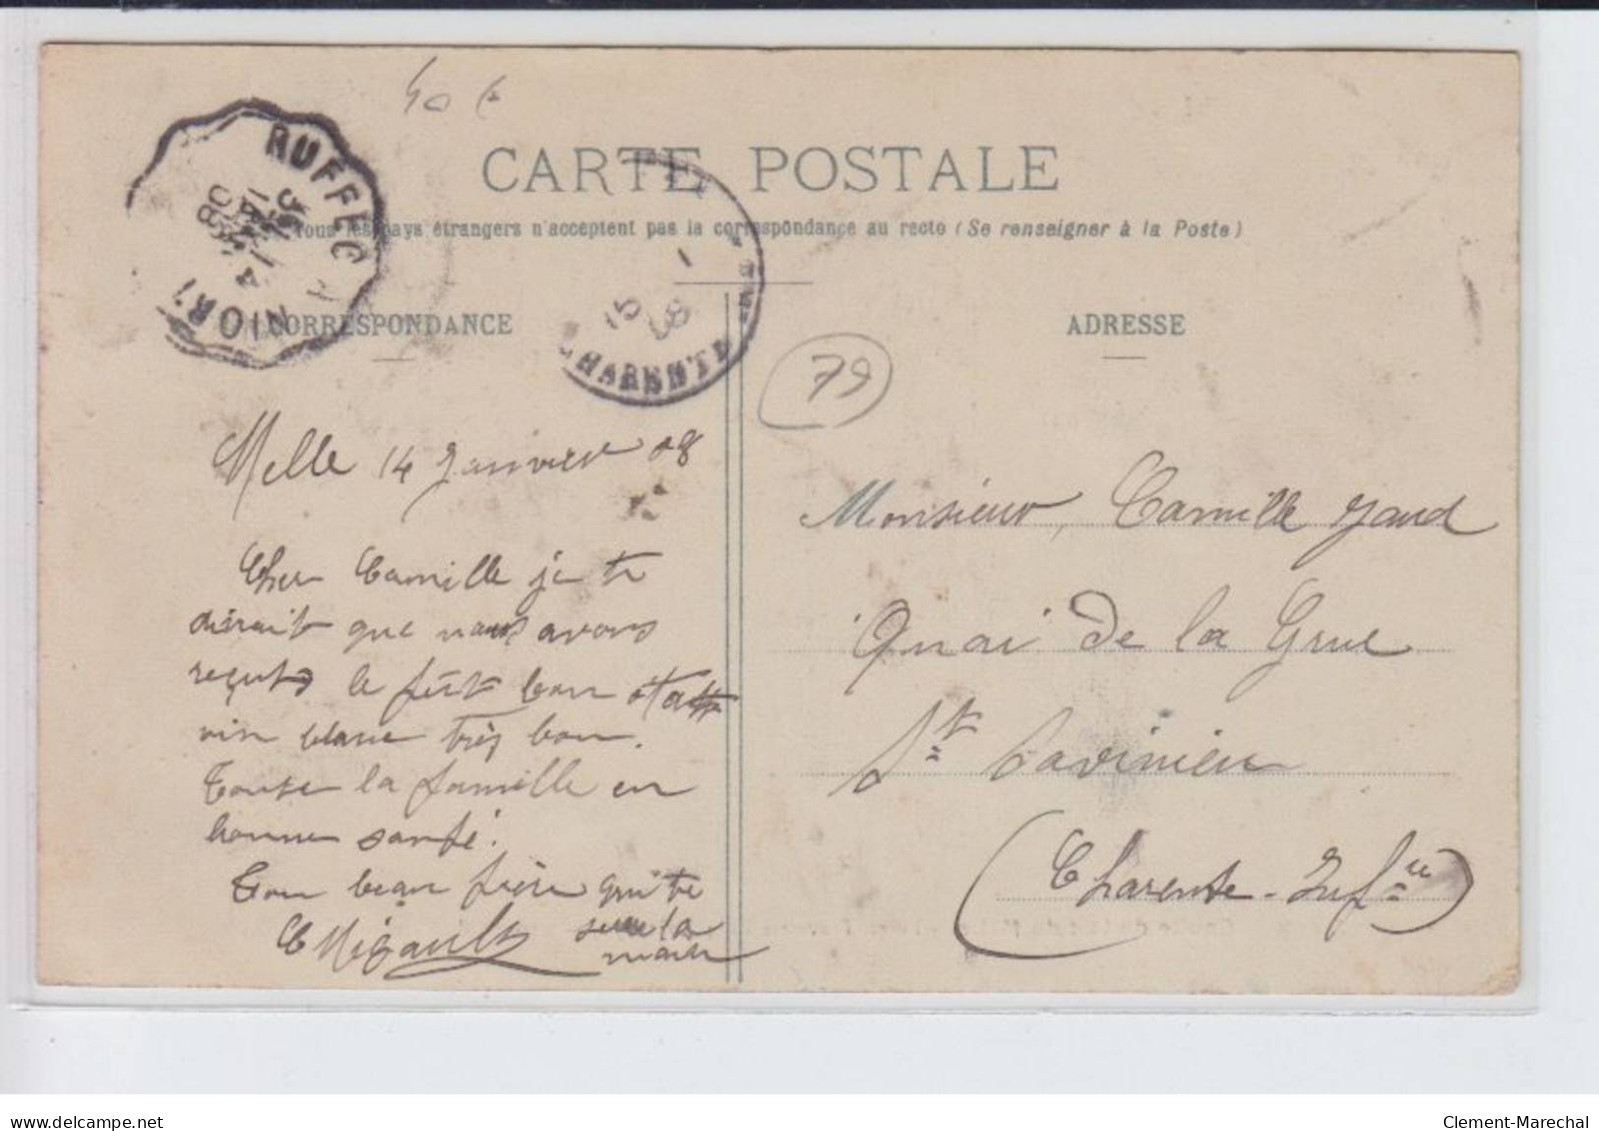 40 €
CARTE POSTALE
Tous les pays étrangers n'acceptent pas la correspondance au recto (Se renseigner à la Poste)
RUFFEC A NIORT
14
08
15 - 1
08
CHARENTE
CORRESPONDANCE
ADRESSE
79
Melle 14 Janvier 08
Cher Camille je te
dirait que nous avons
reçut le fût bon état
vin blanc très bon.
Toute la famille en
bonne santé.
Ton beau frère qui te
serre la
main
Monsieur, Camille Jaud
Quai de la Grue
St Savinien
(Charente-Infre)
delcampe.net
Clement-Marechal